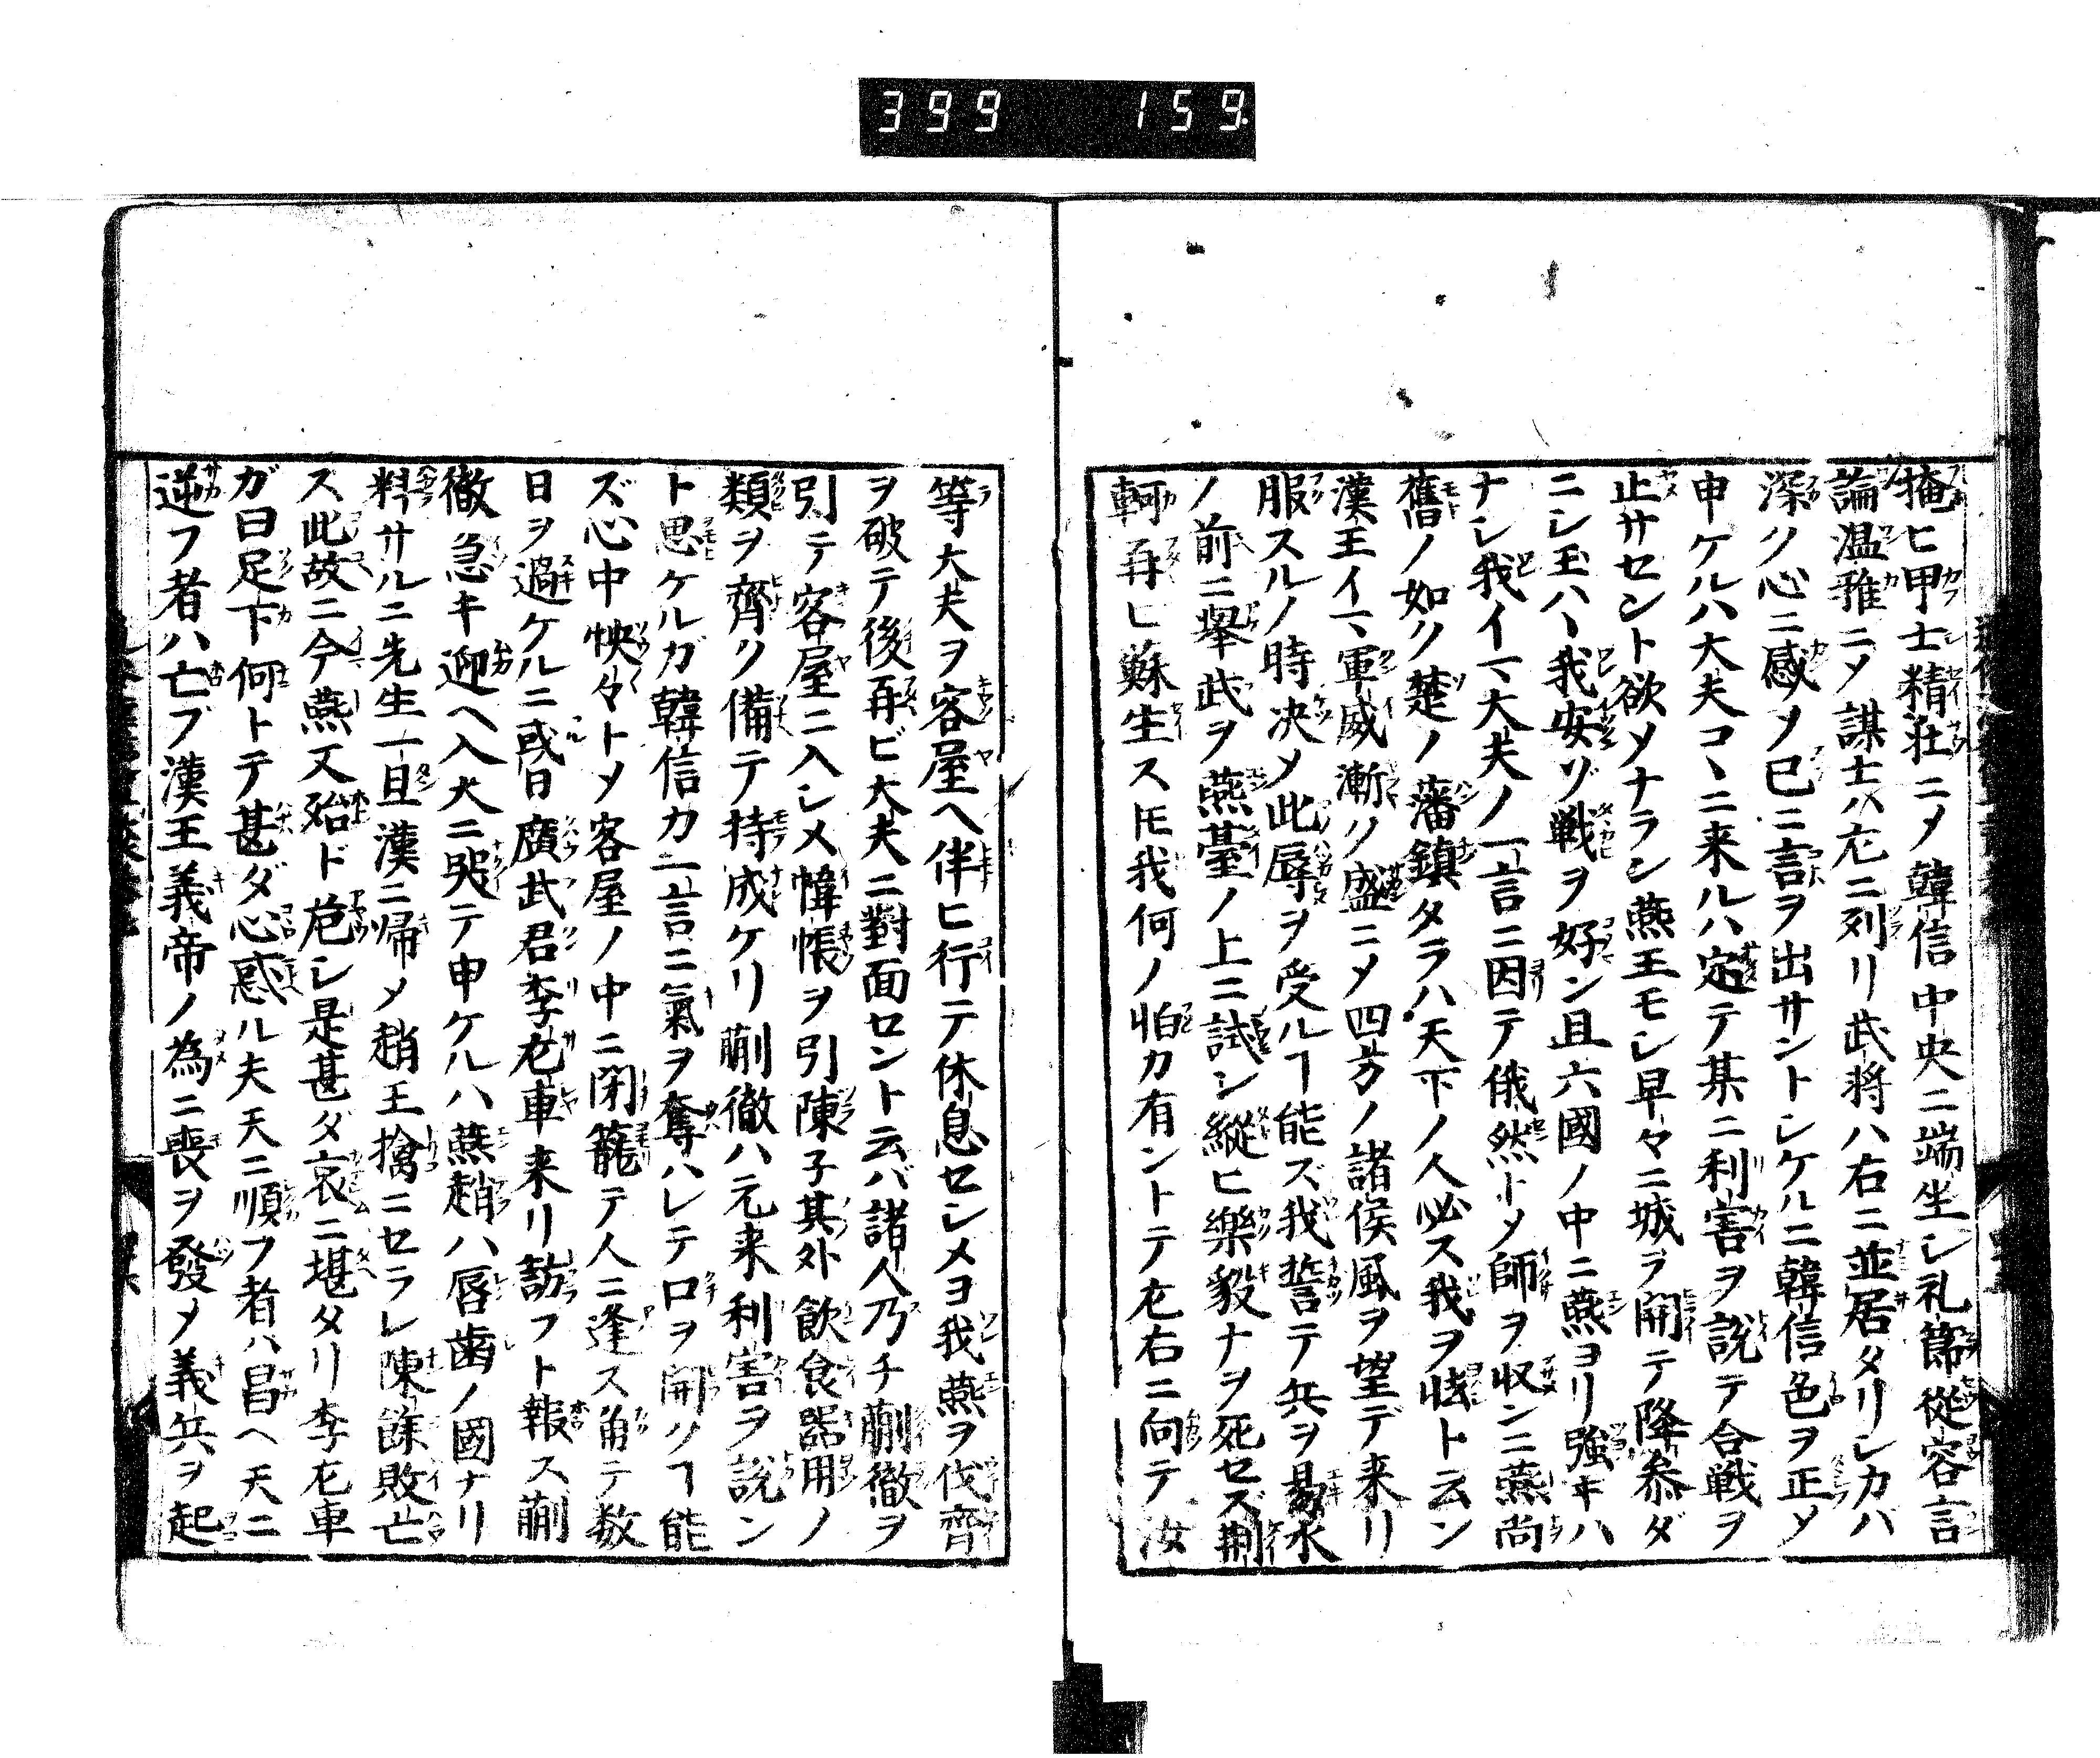 399 159.
掩ヒ甲士精荘ニメ韓信中央ニ端坐シ礼節從容言
論温雅ニメ謀士ハ左ニ列リ武将ハ右ニ並居タリシカバ
深ク心ニ感メ已ニ言ヲ出サントシケルニ韓信色ヲ正メ
申ケルハ大夫コヽニ来ルハ定テ某ニ利害ヲ説テ合戦ヲ
止サセント欲メナラン燕王モシ早々ニ城ヲ開テ降参ダ
ニシ玉ハヽ我安ゾ戦ヲ好ン且六國ノ中ニ燕ヨリ強キハ
ナシ我イマ大夫ノ一言ニ因テ俄然トメ師ヲ収ンニ燕尚
舊ノ如ク楚ノ藩鎮タラハ天下ノ人必ス我ヲ怯ト云ン
漢王イマ軍威漸ク盛ニメ四方ノ諸侯風ヲ望デ来リ
服スルノ時决メ此辱ヲ受ルヿ能ズ我誓テ兵ヲ易水
ノ前ニ挙武ヲ燕臺ノ上ニ試ン縦ヒ樂毅ナヲ死セズ荆
軻再ヒ蘇生ストモ我何ノ怕カ有ントテ左右ニ向テ汝
等大夫ヲ客屋ヘ伴ヒ行テ休息セシメヨ我燕ヲ伐齊
ヲ破テ後再ビ大夫ニ對面セント云バ諸人乃チ蒯徹ヲ
引テ客屋ニ入シメ幃帳ヲ引陳子其外飲食器用ノ
類ヲ齊ク備テ持成ケリ蒯徹ハ元来利害ヲ説ン
ト思ケルガ韓信カ一言ニ氣ヲ奪ハレテ口ヲ開クヿ能
ズ心中怏々トメ客屋ノ中ニ閉籠テ人ニ逢ス角テ数
日ヲ過ケルニ或日廣武君李左車来リ訪フト報ス蒯
徹急キ迎ヘ入大ニ哭テ申ケルハ燕趙ハ唇歯ノ國ナリ
料サルニ先生一旦漢ニ帰メ趙王擒ニセラレ陳餘敗亡
ス此故ニ今燕又殆ド危シ是甚ダ哀ニ堪タリ李左車
ガ曰足下何トテ甚ダ心惑ル夫天ニ順フ者ハ昌ヘ天ニ
逆フ者ハ亡ブ漢王義帝ノ為ニ喪ヲ發メ義兵ヲ起